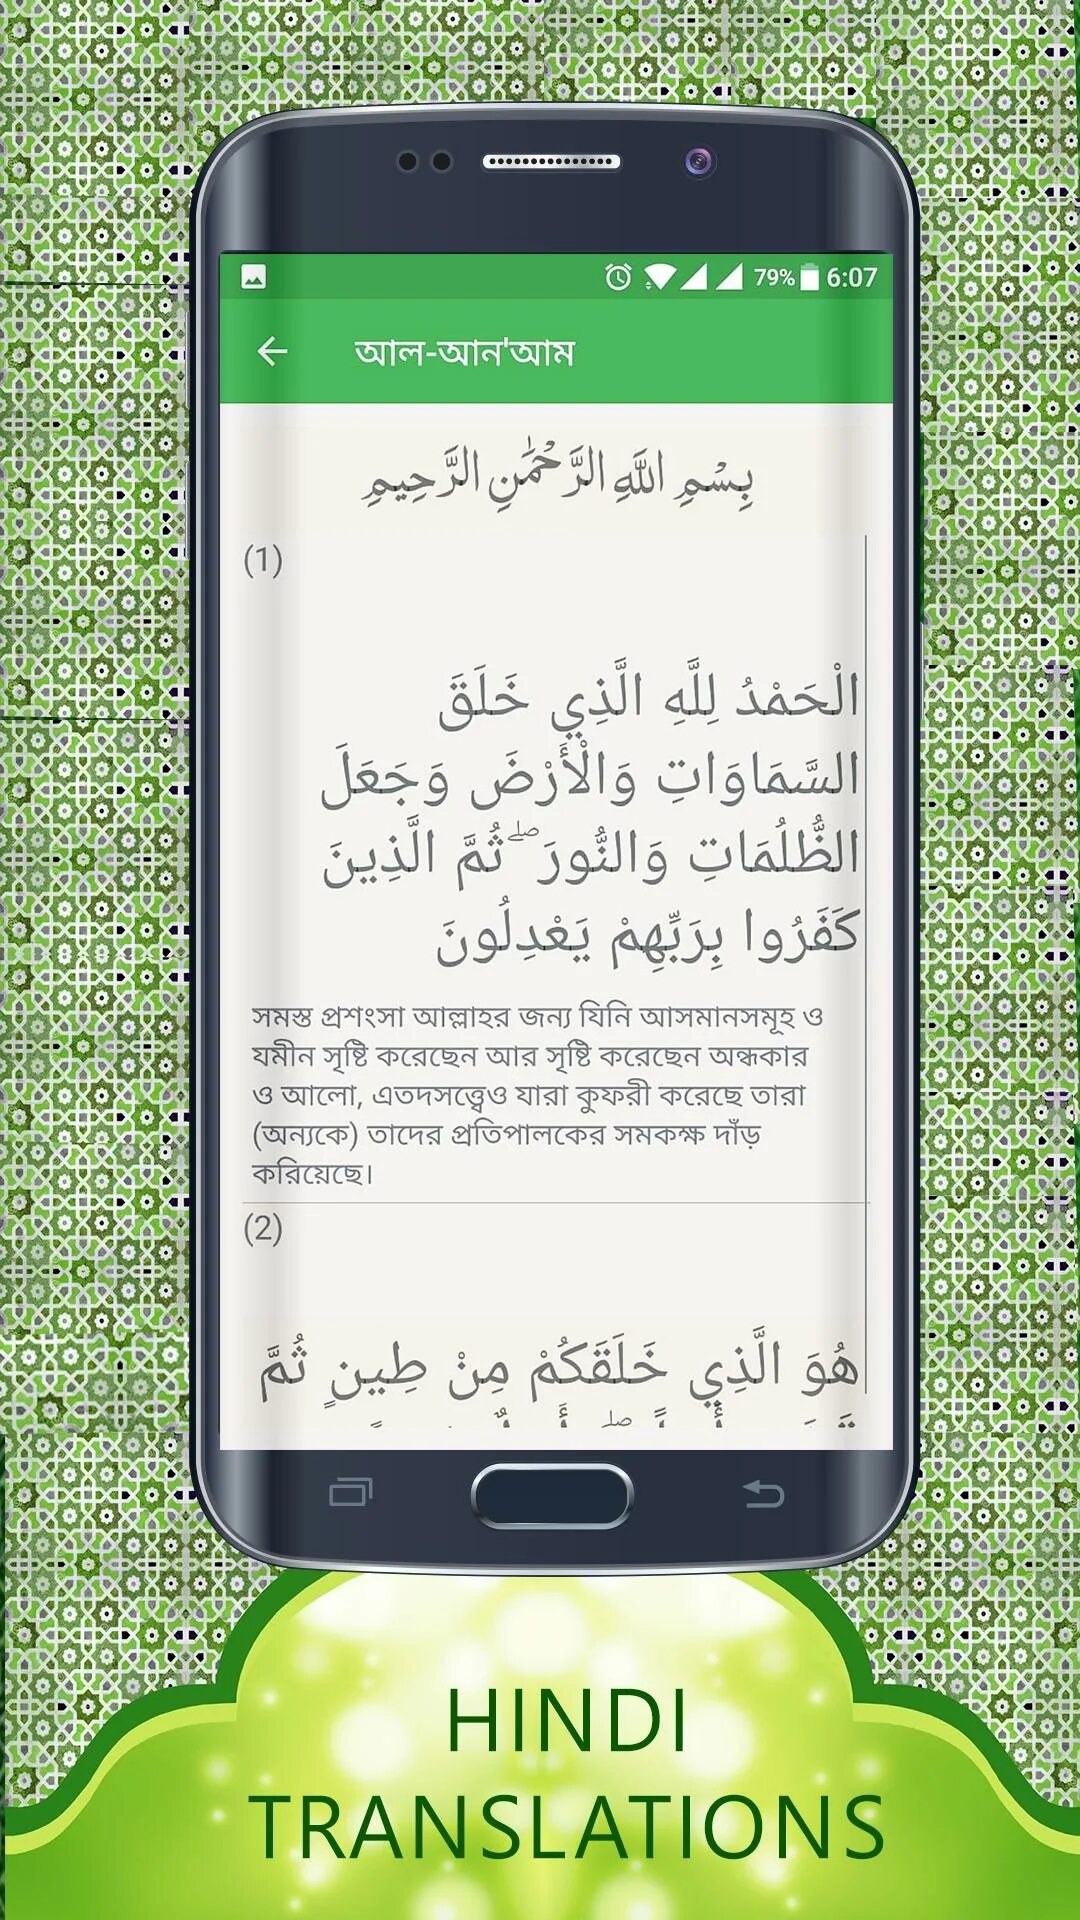 79% 6:07
আল-আন'আম
بِسْمِ اللَّهِ الرَّحْمَٰنِ الرَّحِيمِ
(1)
الْحَمْدُ لِلَّهِ الَّذِي خَلَقَ
السَّمَاوَاتِ وَالْأَرْضَ وَجَعَلَ
الظُّلُمَاتِ وَالنُّورَ ۖ ثُمَّ الَّذِينَ
كَفَرُوا بِرَبِّهِمْ يَعْدِلُونَ
সমস্ত প্রশংসা আল্লাহর জন্য যিনি আসমানসমূহ ও
যমীন সৃষ্টি করেছেন আর সৃষ্টি করেছেন অন্ধকার
ও আলো, এতদসত্ত্বেও যারা কুফরী করেছে তারা
(অন্যকে) তাদের প্রতিপালকের সমকক্ষ দাঁড়
করিয়েছে।
(2)
هُوَ الَّذِي خَلَقَكُمْ مِنْ طِينٍ ثُمَّ
HINDI
TRANSLATIONS